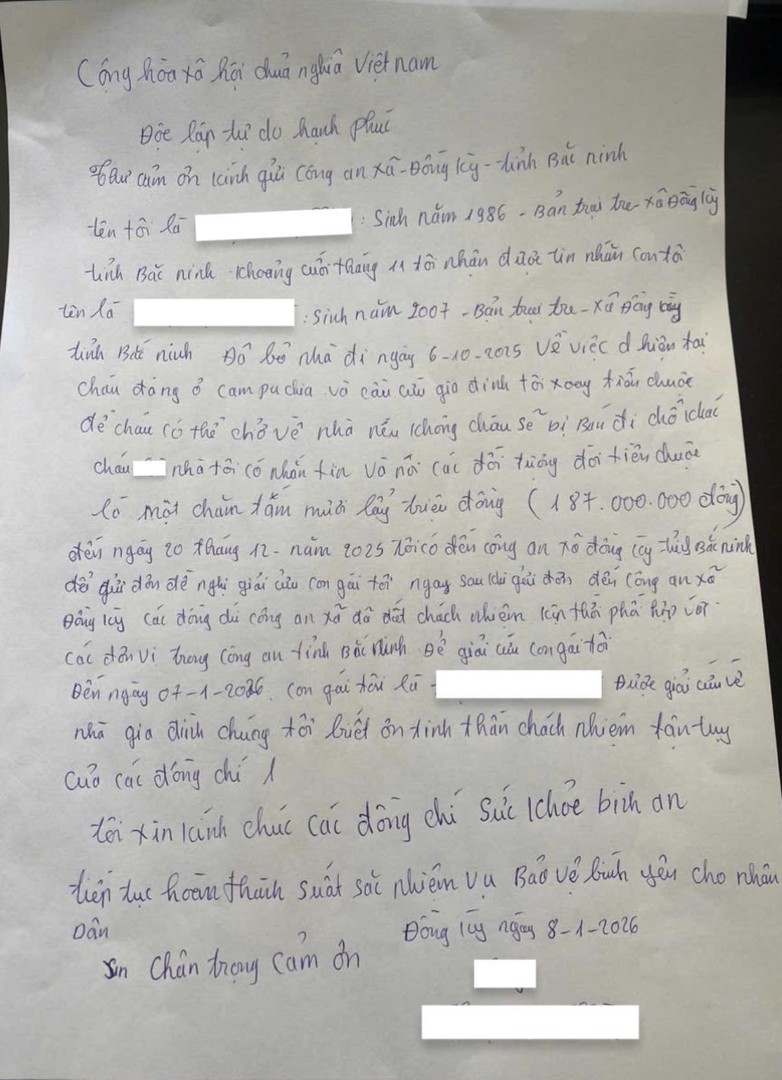 Cộng hòa xã hội chủa nghĩa Việt nam
Độc lập tự do hạnh phúc
Thư cảm ơn kính gửi Công an xã - Đồng Kỳ - tỉnh Bắc ninh
tên tôi là : Sinh năm 1986 - Bản trại tre - xã Đồng Kỳ
tỉnh Bắc ninh khoảng cuối tháng 11 tôi nhận được tin nhắn con tôi
tên là : Sinh năm 2007 - Bản trại tre - xã Đồng Kỳ
tỉnh Bắc ninh Đã bỏ nhà đi ngày 6-10-2025 Về việc hiện tại
cháu đang ở campuchia và cầu cứu gia đình tôi xoay tiền chuộc
để cháu có thể chở về nhà nếu không cháu sẽ bị Bán đi chỗ khác
cháu nhà tôi có nhắn tin và nói các đối tượng đòi tiền chuộc
là một chăm tắm mươi lảy triệu đồng (187.000.000 đồng)
đến ngày 20 tháng 12 - năm 2025 tôi có đến công an xã đồng kỳ tỉnh Bắc ninh
để gửi đơn đề nghị giải cứu con gái tôi ngay sau khi gửi đơn đến công an xã
Đồng kỳ các đồng chí công an xã đã rất chách nhiệm kịp thời phấ hợp với
các đơn vi trong công an tỉnh Bắc Ninh Để giải cứu con gái tôi
Đến ngày 07-1-2026. con gái tôi là Được giải cứu về
nhà gia đình chúng tôi biết ơn tinh thần chách nhiệm tận tuy
của các đồng chí
tôi xin kính chúc các đồng chí sức khỏe bình an
tiếp tục hoàn thành suất sắc nhiệm vụ Bảo vệ bình yên cho nhân
Dân
Đồng kỳ ngày 8-1-2026
Sin chân trọng cảm ơn